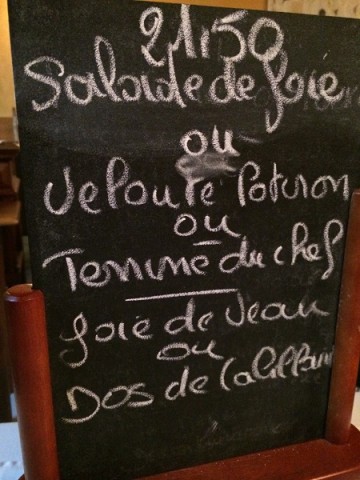 21,50
Salade de foie
ou
Velouté Potiron
ou
Terrine du chef
foie de Veau
ou
Dos de Cabillaud